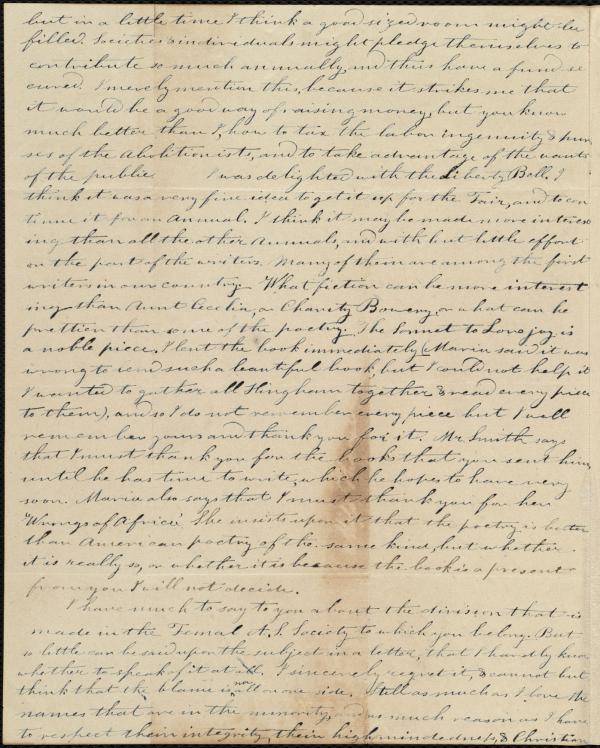 but in a little time I think a good sized room might be
filled. Societies & individuals might pledge themselves to
contribute so much annually, and thus have a fund se
cured. I merely mention this, because it strikes me that
it would be a good way of raising money, but you know
much better than I, how to tax the labor ingenuity & pur
ses of the Abolitionists, and to take advantage of the wants
of the public I was delighted with the Liberty Bell. I
think it was a very fine idea to get it up for the Fair, and to con
tinue it for an Annual. I think it may be made more interes
ing than all the other Annuals, and with but little effort
on the part of the writers. Many of them are among the first
writers in our country. What fiction can be more interest
ing than Aunt Cecelia, or Charity Bowery, or what can be
prettier than some of the poetry. The Sonnet to Lovejoy is
a noble piece. I lent the book immediately (Maria said it was
wrong to lend such a beautiful book, but I could not help it
I wanted to gather all Hingham together & read every piece
to them), and so I do not remember every piece but I well
remember yours and thank you for it. Mr. Smith says
that I must thank you for the books that you sent him,
until he has time to write, which he hopes to have very
soon. Maria also says that I must thank you for her
"Wrongs of Africa" She insists upon it that the poetry is better
than American poetry of the same kind, but whether
it is really so, or whether it is because the book is a present
from you I will not decide.
I have much to say to you about the division that is
made in the Femal A. S. Society to which you belong. But
so little can be said upon the subject in a letter, that I hardly know
whether to speak of it at all. I sincerely regret it, & cannot but
think that the blame is not all on one side. Still as much as I love the
names that are in the minority, and as much reason as I have
to respect their integrity, their highmindedness, & Christian